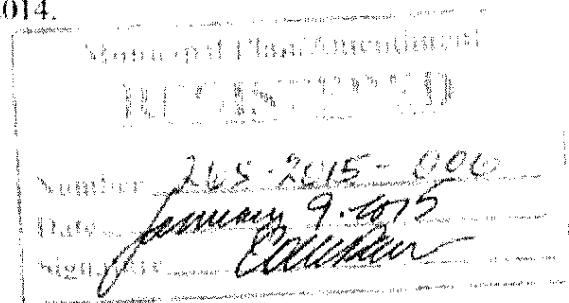 2014.
Municipal Plan/Amendment
REGISTERED
Number 265-2015-006
Date January 9. 2015
Signature